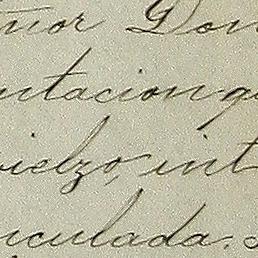 ñor Don
ntacion q
ielzo, int
culada.